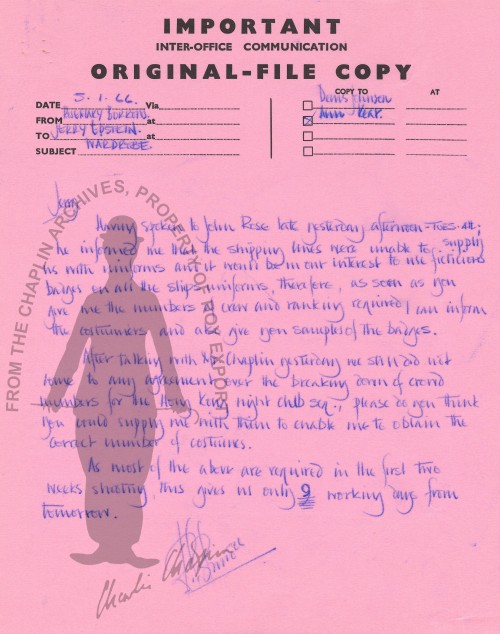 IMPORTANT
INTER-OFFICE COMMUNICATION
ORIGINAL-FILE COPY
COPY TO AT
DATE 5.1.66. Via
FROM HILARY at
TO JERRY EPSTEIN. at
SUBJECT WARDROBE.
Denis Johnson
Ann
Jerry
Having spoken to John Rose late yesterday afternoon - TUES.
he informed me that the shipping lines were unable to supply
us with uniforms and it would be in our interest to use ficticious
badges on all the ships uniforms, therefore, as soon as you
give me the numbers of crew and ranking required I can inform
the costumiers and also give you samples of the badges.
After talking with Mr Chaplin yesterday we still did not
come to any agreement over the breaking down of crowd
numbers for the Hong Kong night club seq., please do you think
you could supply me with them to enable me to obtain the
correct number of costumes.
As most of the above are required in the first two
weeks shooting, this gives us only 9 working days from
tomorrow.
Charlie Chaplin
FROM THE CHAPLIN ARCHIVES, PROPERTY OF ROY EXPORT